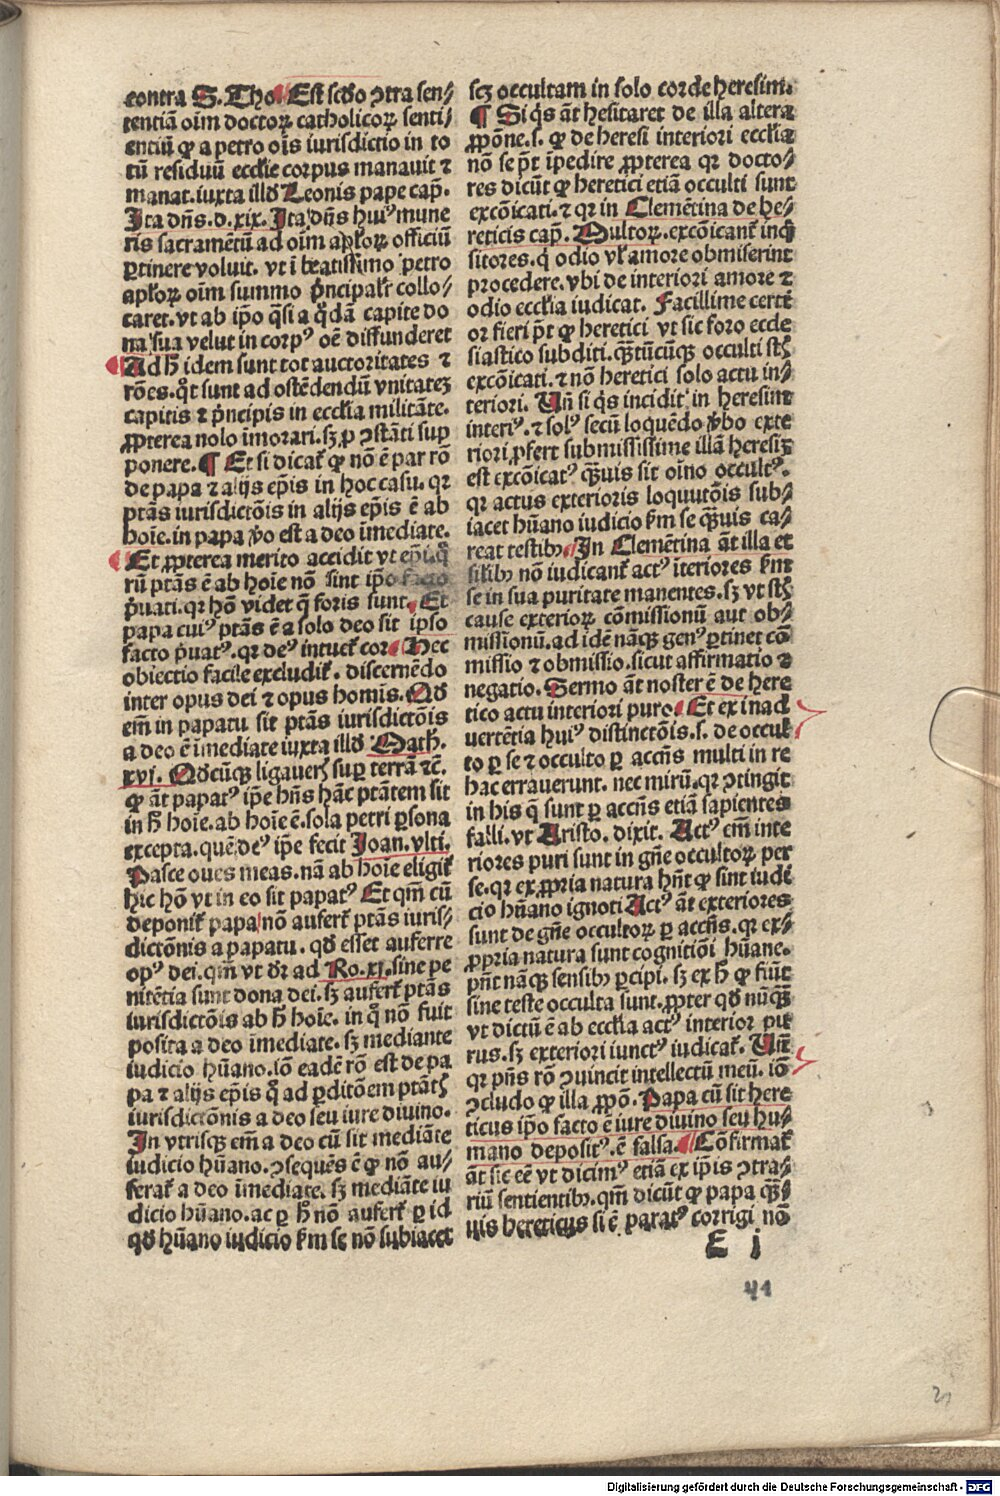 contra S. Tho. Est scḋo ↄtra sen⸗
tentiā oīm doctoꝝ catholicoꝝ senti⸗
entiū ꝙ a petro oīs iurisdictio in to
tū residuū eccłie corpus manauit ⁊
manat. iuxta illḋ Leonis pape cap̄.
Ita dn̄s. d. xix. Ita dn̄s huiꝰ mune
ris sacramētū ad oīm apłoꝝ officiū
ꝑtinere voluit. vt ī beatissimo petro
apłoꝝ oīm summo p̄ncipalr̄ collo⸗
caret. vt ab ip̄o q̄si a q̇dā capite do
na sua velut in corpꝰ oē diffunderet
Ad ħ idem sunt tot auctoritates ⁊
rōes. q̇t sunt ad ostēdendū vnitatez
capitis ⁊ p̄ncipis in eccłia militāte.
ꝓpterea nolo īmorari. sꝫ ꝓ ↄstāti sup
ponere. ¶ Et si dicat̄ ꝙ nō ē par rō
de papa ⁊ alijs ep̄is in hoc casu. qꝛ
ptās iurisdictōis in alijs ep̄is ē ab
hoīe. in papa ꝟo est a deo īmediate.
Et ꝓpterea merito accidit vt ep̄i. q̄
rū ptās ē ab hoīe nō sint ip̄o facto
p̄uati. qꝛ hō videt q̄ foris sunt. Et
papa cuiꝰ ptās ē a solo deo sit ipso
facto p̄uatꝰ. qꝛ deꝰ intuet̄ cor. Hec
obiectio facile excludit̄. discernēdo
inter opus dei ⁊ opus homīs. Qḋ
em̄ in papatu sit ptās iurisdictōis
a deo ē īmediate iuxta illḋ Math.
xvj. Qḋcūqꝫ ligaueris sup terrā ⁊c̄.
ꝙ āt papatꝰ ip̄e hn̄s hāc ptātem sit
in ħ hoīe. ab hoīe ē. sola petri ꝑsona
excepta. quē deꝰ ip̄e fecit Joan. vlti.
Pasce oues meas. nā ab hoīe eligit̄
hic hō vt in eo sit papatꝰ Et qm̄ cū
deponit̄ papa nō aufert̄ ptās iuris⸗
dictōnis a papatu. qḋ esset auferre
opꝰ dei. qm̄ vt dr̄ ad Ro. xj. sine pe
nitētia sunt dona dei. sꝫ aufert̄ ptās
iurisdictōis ab ħ hoīe. in q̇ nō fuit
posita a deo īmediate. sꝫ mediante
iudicio hūano. iō eadē rō est de pa
pa ⁊ alijs ep̄is q̇ ad ꝑditōem ptātis
iurisdictōnis a deo seu iure diuino.
In vtrisqꝫ em̄ a deo cū sit mediāte
iudicio hūano. ↄsequēs ē ꝙ nō au⸗
ferat̄ a deo īmediate. sꝫ mediāte iu
dicio hūano. ac ꝑ ħ nō aufert̄ ꝑ id
qḋ hūano iudicio ẜm se nō subiacet
scꝫ occultam in solo corde heresim.
¶ Si q̇s āt hesitaret de illa altera
ꝓpōne. s. ꝙ de heresi interiori eccłia
nō se pōt īpedire ꝓpterea qꝛ docto⸗
res dicūt ꝙ heretici etiā occulti sunt
excōicati. ⁊ qꝛ in Clemētina de he⸗
reticis cap̄. Multoꝝ. excōicant̄ inq̇
sitores. q̇ odio vł amore obmiserint
procedere. vbi de interiori amore ⁊
odio eccłia iudicat. Facillime certi
or fieri pōt ꝙ heretici vt sic foro eccle
siastico subditi. q̄ntūcūqꝫ occulti sīt
excōicati. ⁊ nō heretici solo actu in⸗
teriori. Un̄ si q̇s incidit in heresim
interiꝰ. ⁊ solꝰ secū loquēdo ꝟbo exte
riori ꝓfert submississime illā heresiꝫ
est excōicatꝰ q̄ꝫuis sit oīno occultꝰ.
qꝛ actus exterioris loquutōis sub⸗
iacet hūano iudicio ẜm se q̄ꝫuis ca⸗
reat testibꝫ. In Clemētina āt illa et
silibꝫ nō iudicant̄ actꝰ īteriores ẜm
se in sua puritate manentes. sꝫ vt sīt
cause exterioꝝ cōmissionū aut ob⸗
missionū. ad idē nāqꝫ genꝰ ꝑtinet cō
missio ⁊ obmissio. sicut affirmatio ⁊
negatio. Sermo āt noster ē de here
tico actu interiori puro. Et ex inad
uertētia huiꝰ distinctōis. s. de occul
to ꝑ se ⁊ occulto ꝑ accn̄s multi in re
hac errauerunt. nec mirū. qꝛ ↄtingit
in his q̄ sunt ꝑ accn̄s etiā sapientes
falli. vt Aristo. dixit. Actꝰ em̄ inte
riores puri sunt in gn̄e occultoꝝ per
se. qꝛ ex ꝓpria natura hn̄t ꝙ sint iudi
cio hūano ignoti Actꝰ āt exteriores
sunt de gn̄e occultoꝝ ꝑ accn̄s. qꝛ ex⸗
ꝓpria natura sunt cognitiōi hūane.
pn̄t nāqꝫ sensibꝫ ꝑcipi. sꝫ ex ħ ꝙ fiūt
sine teste occulta sunt. ꝓpter qḋ nūq̄ꝫ
vt dictū ē ab eccłia actꝰ interior pu
rus. sꝫ exteriori iunctꝰ iudicat̄. Un̄
qꝛ pn̄s rō ↄuincit intellectū meū. iō
ↄcludo ꝙ illa ꝓpō. Papa cū sit here
ticus ip̄o facto ē iure diuino seu hu⸗
mano depositꝰ. ē falsa. Cōfirmat̄
āt sic eē vt dicimꝰ etiā ex ip̄is ↄtra⸗
riū sentientibꝫ. qm̄ dicūt ꝙ papa q̄ꝫ⸗
uis hereticus si ē paratꝰ corrigi nō
E j
41
21
Digitalisierung gefördert durch die Deutsche Forschungsgemeinschaft - DFG